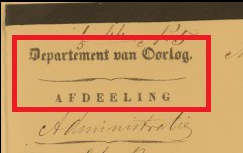 Departement van Oorlog.
AFDEELING
Administratie